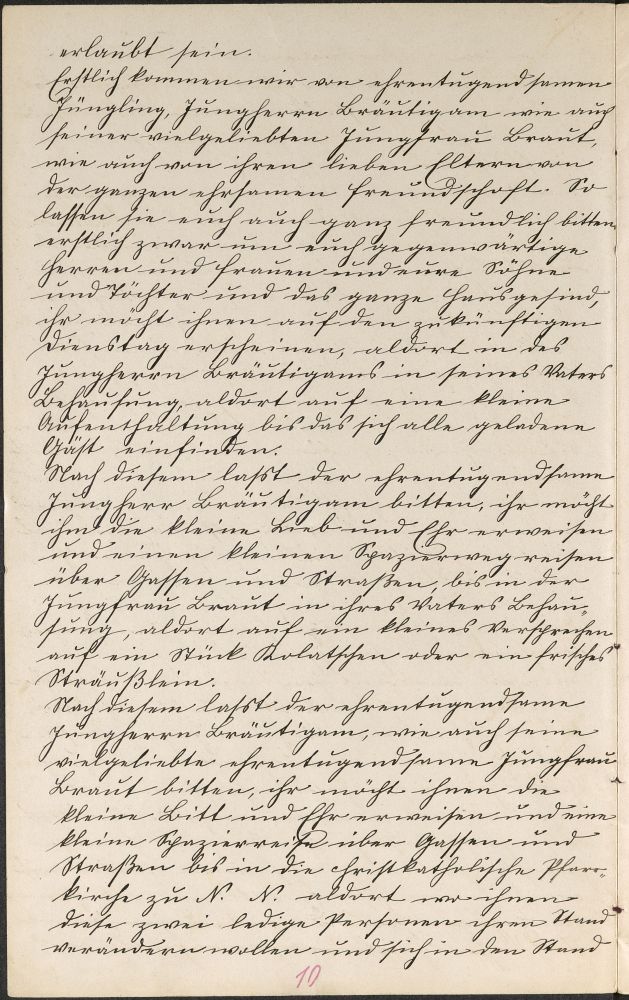 erlaubt sein.
Erstlich kommen wir von ehrentugendsamen
Jüngling, Jungherrn Bräutigam wie auch
seiner vielgeliebten Jungfrau Braut,
wie auch von ihren lieben Eltern von
der ganzen ehrsamen Freundschaft. So
lassen sie euch auch ganz freundlich bitten
erstlich zwar um euch gegenwärtige
Herren und Frauen und eure Söhne
und Töchter und das ganze Hausgesind,
ihr möcht ihnen auf den zukünftigen
Dienstag erscheinen, aldort in des
Jungherrn Bräutigams in seines Vaters
Behausung, aldort auf eine kleine
Aufenthaltung bis das sich alle geladene
Gäst einfinden.
Nach diesem lasst der ehrentugendsame
Jungherr Bräutigam bitten, ihr möcht
ihm die kleine Lieb und Ehr erweisen
und einen kleinen Spazierweg reisen
über Gassen und Straßen, bis in der
Jungfrau Braut in ihres Vaters Behau-
sung, aldort auf ein kleines Versprechen
auf ein Stück Kolatschen oder ein frisches
Sträußlein.
Nach diesem lasst der ehrentugendsame
Jungherrn Bräutigam, wie auch seine
vielgeliebte ehrentugendsame Jungfrau
Braut bitten, ihr möcht ihnen die
kleine Bitt und Ehr erweisen und eine
kleine Spazierreise über Gassen und
Straßen bis in die christkatholische Pfarr-
kirche zu N. N. aldort wo ihnen
diese zwei ledige Personen ihren Stand
verändern wollen und sich in den Stand
10